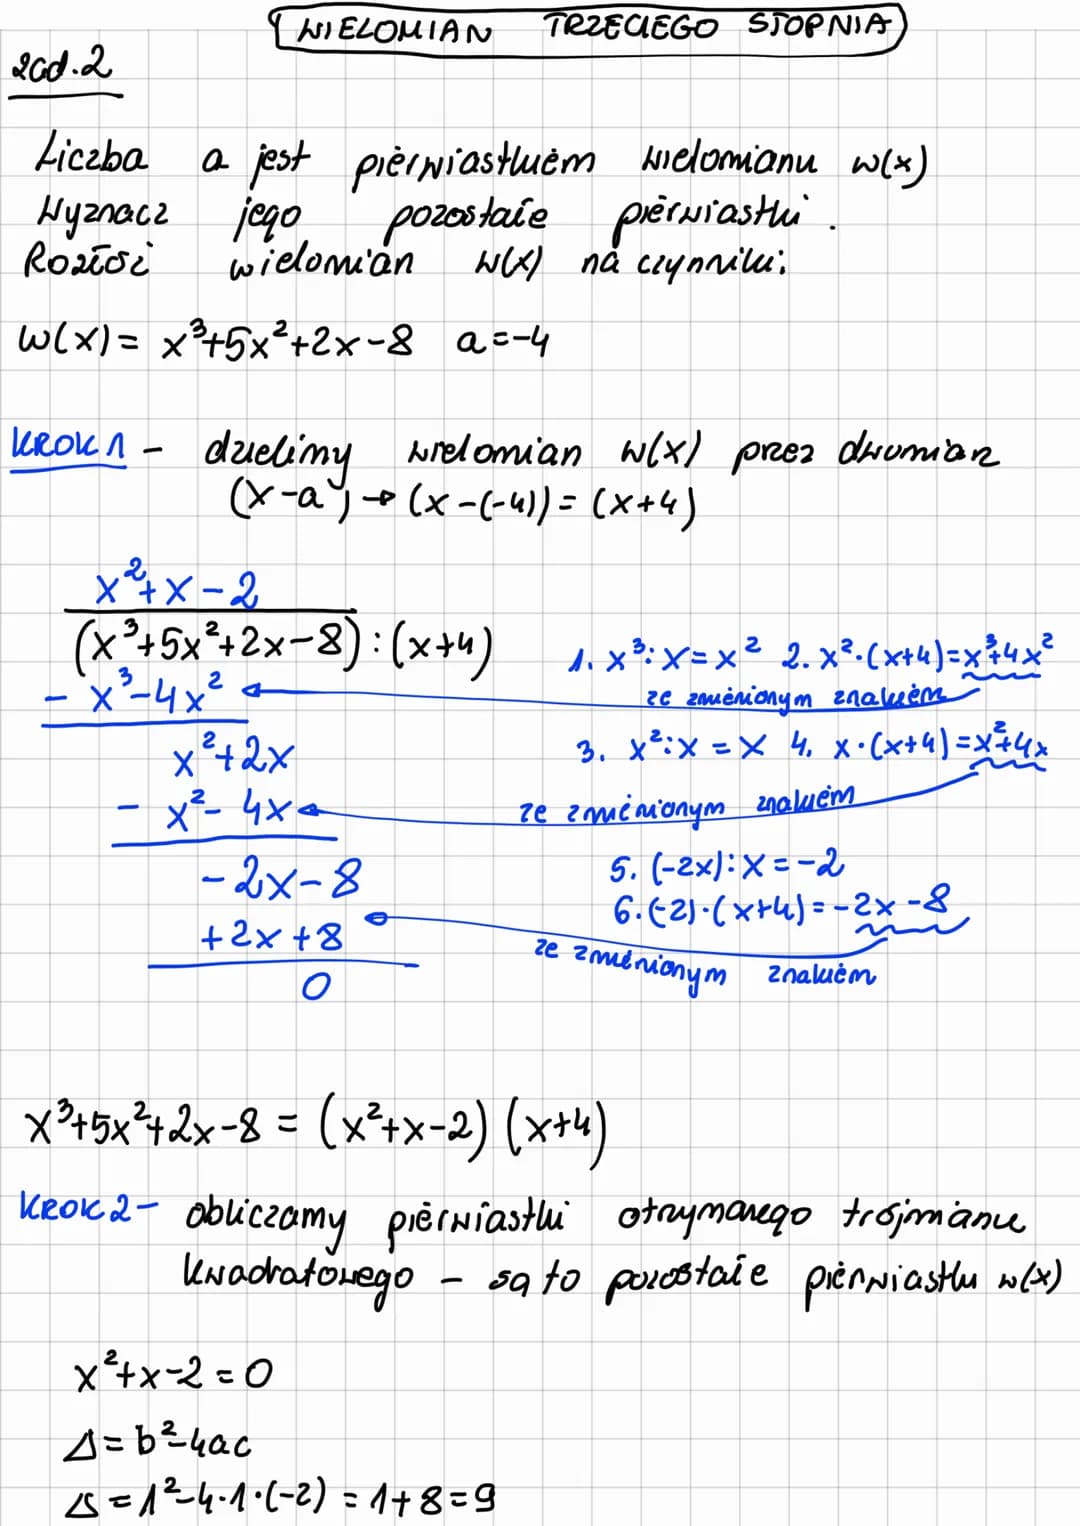 WIELOMIAN TRZECIEGO STOPNIA
zad.2
Liczba a jest pierwiastkiem wielomianu w(x)
Wyznacz jego pozostałe pierwiastki.
Rozłóż wielomian w(x) na czynniki:
w(x) = x³+5x²+2x-8 a=-4
KROK 1 - dzielimy wielomian w(x) przez dwumian
(x-a) → (x-(-4)) = (x+4)
x²+x-2
(x³+5x²+2x-8):(x+4)
1. x³:x=x² 2. x²·(x+4)=x³+4x²
- x³-4x²
ze zmienionym znakiem
x²+2x
3. x²:x = x 4. x·(x+4)=x²+4x
- x²-4x
ze zmienionym znakiem
-2x-8
5. (-2x):x=-2
6. (-2)·(x+4)=-2x-8
+2x+8
ze zmienionym znakiem
0
x³+5x²+2x-8 = (x²+x-2)(x+4)
KROK 2- obliczamy pierwiastki otrzymanego trójmianu
kwadratowego - są to pozostałe pierwiastki w(x)
x²+x-2=0
Δ=b²-4ac
Δ=1²-4·1·(-2) = 1+8=9